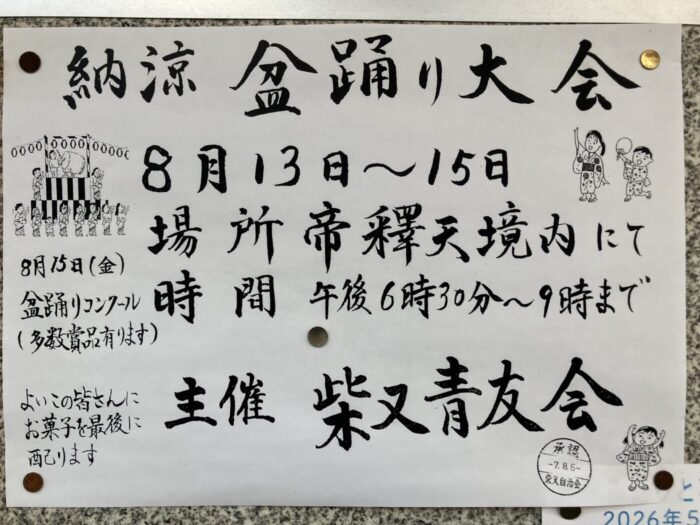 納涼 盆踊り大会
8月13日～15日
場所 帝釋天境内にて
時間 午後6時30分～9時まで
8月15日(金)
盆踊りコンクール
(多数賞品有ります)
主催 柴又青友会
よいこの皆さんに
お菓子を最後に
配ります
承認
-7.8.6-
柴又自治会
2026年5